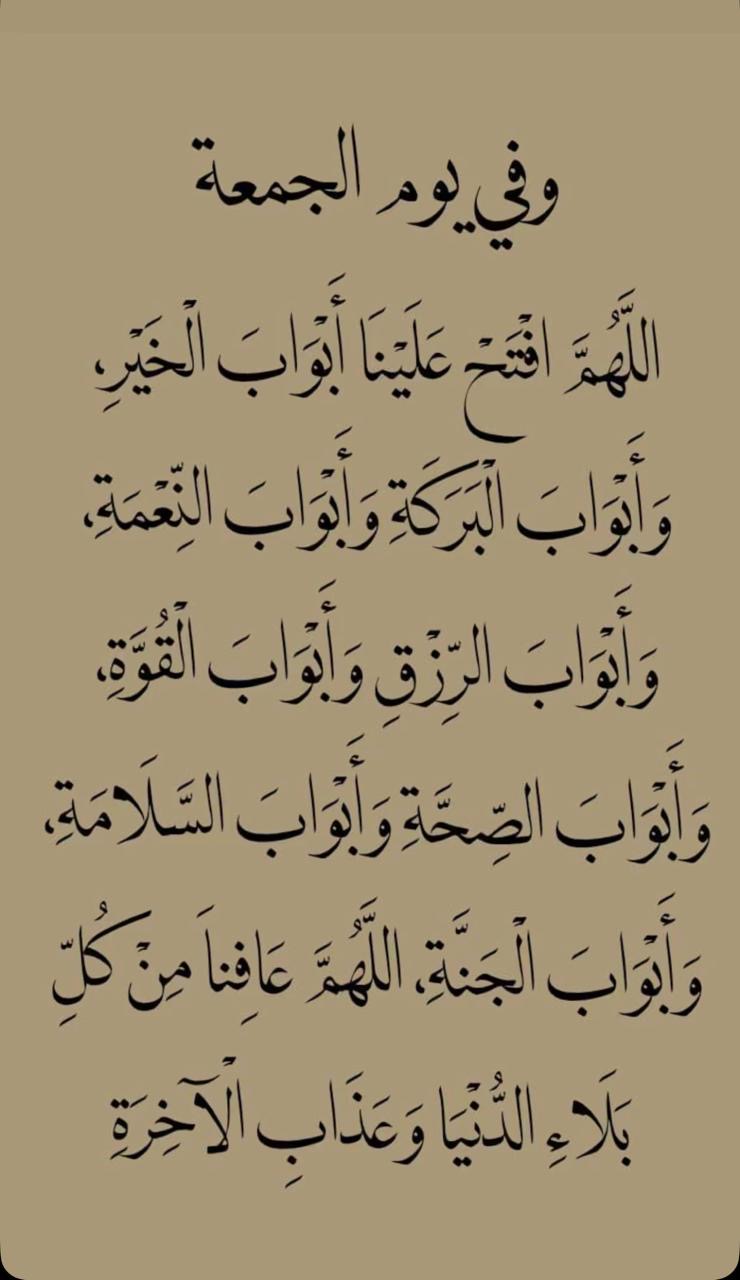 وفي يوم الجمعة
اللَّهُمَّ افْتَحْ عَلَيْنَا أَبْوَابَ الْخَيْرِ،
وَأَبْوَابَ الْبَرَكَةِ وَأَبْوَابَ النِّعْمَةِ،
وَأَبْوَابَ الرِّزْقِ وَأَبْوَابَ الْقُوَّةِ،
وَأَبْوَابَ الصِّحَّةِ وَأَبْوَابَ السَّلَامَةِ،
وَأَبْوَابَ الْجَنَّةِ، اللَّهُمَّ عَافِناَ مِنْ كُلِّ
بَلَاءِ الدُّنْيَا وَعَذَابِ الْآخِرَةِ